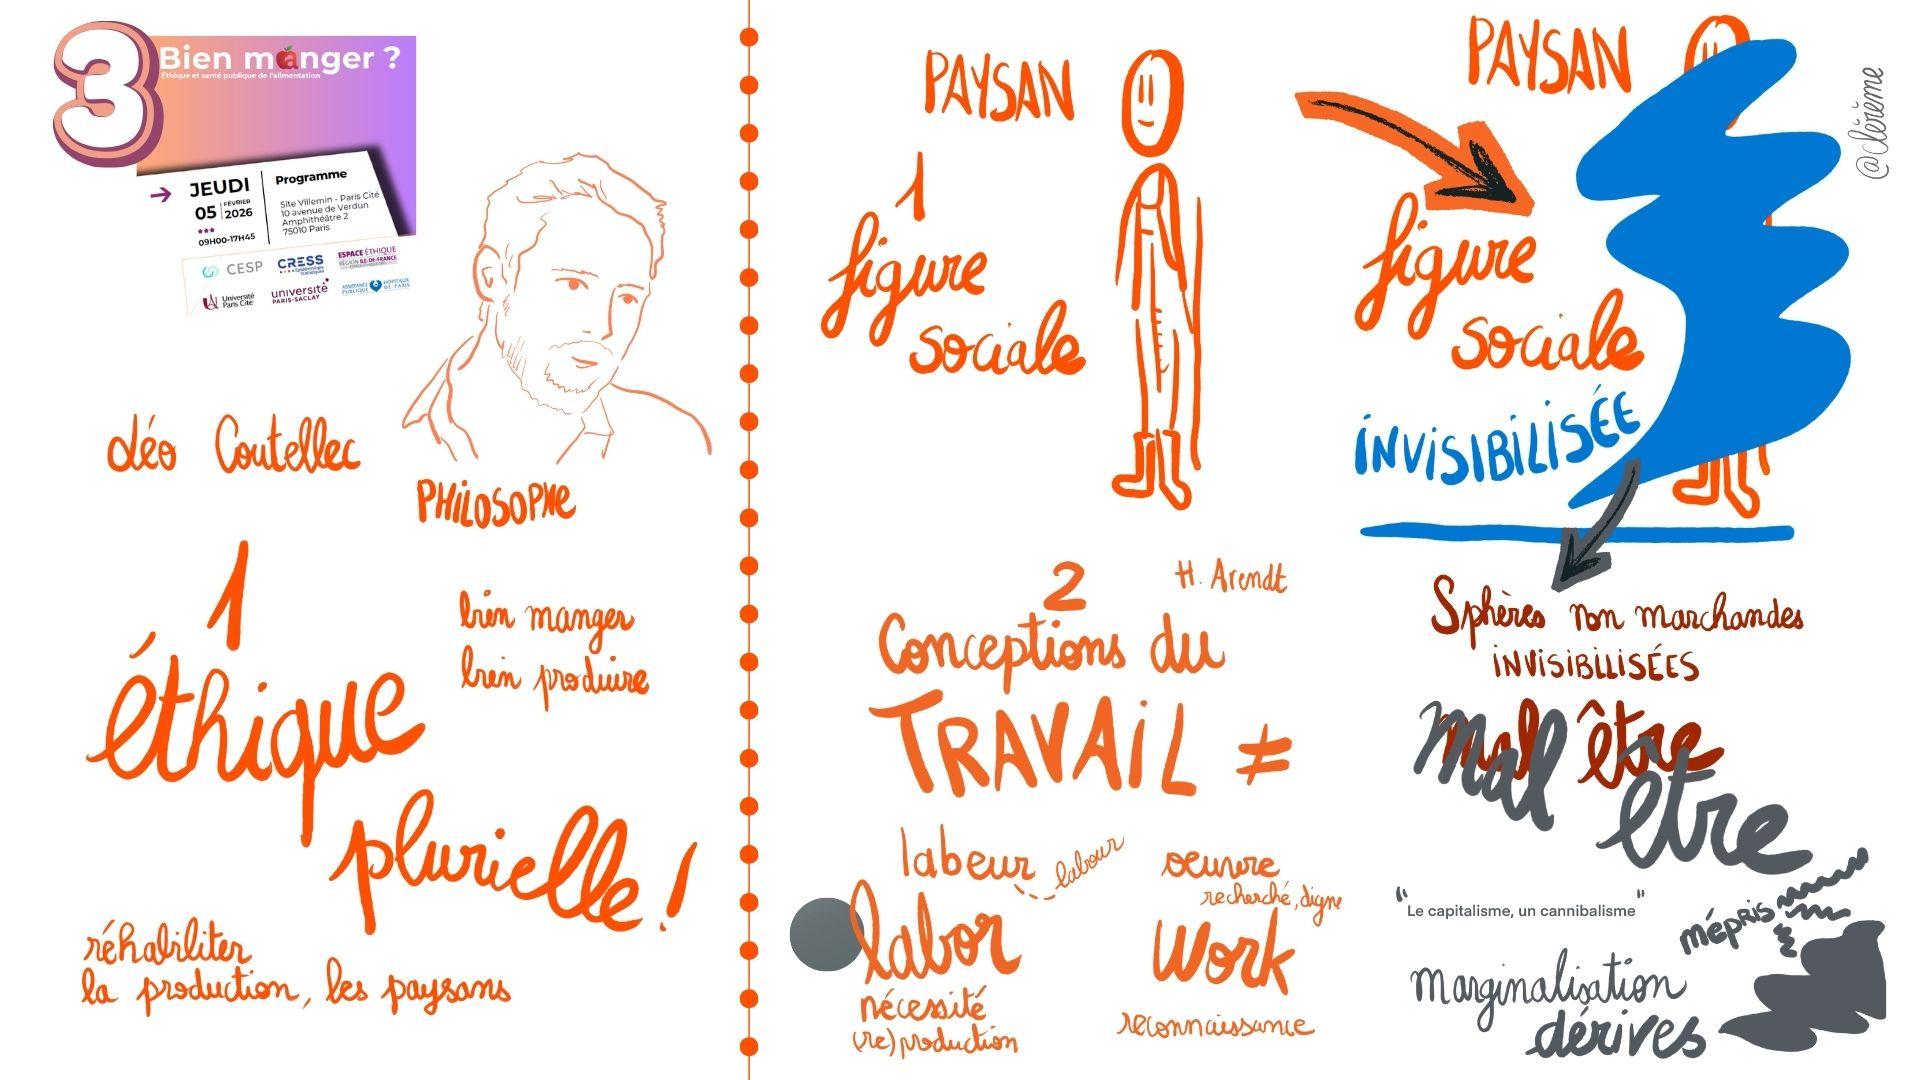 3
Bien manger ?
Éthique et santé publique de l'alimentation
→ JEUDI
05 FÉVRIER 2026
09H00-17H45
Programme
Site Villemin - Paris Cité
10 avenue de Verdun
Amphithéâtre 2
75010 Paris
CESP
CRESS
ESPACE ÉTHIQUE
RÉGION ILE-DE-FRANCE
Université
Paris Cité
université
PARIS-SACLAY
ASSISTANCE PUBLIQUE HÔPITAUX DE PARIS
Léo Coutellec
PHILOSOPHE
1
éthique
plurielle !
bien manger
bien produire
réhabiliter
la production, les paysans
PAYSAN
1
figure
sociale
2
H. Arendt
Conceptions du
TRAVAIL ≠
labeur
labour
labor
nécessité
(re)production
oeuvre
recherché, digne
Work
reconnaissance
PAYSAN
figure
sociale
INVISIBILISÉE
Sphères non marchandes
INVISIBILISÉES
mal être
mal être
"Le capitalisme, un cannibalisme"
MÉPRIS
marginalisation
dérives
@clérème